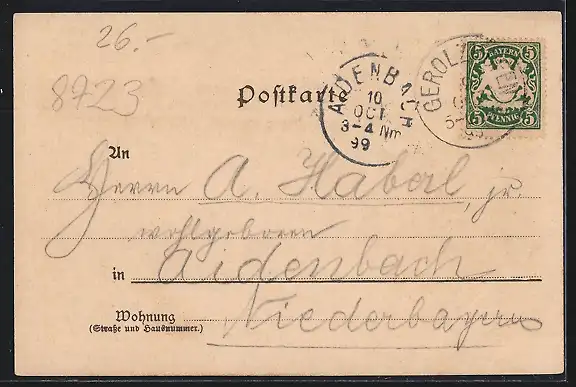 26.-
8723
Postkarte
AIDENBACH
10
OCT
3-4 Nm
99
GEROLZ
5 BAYERN 5
5 PFENNIG 5
An
Herrn A. Haberl, jr.
wohlgeboren
in Aidenbach
Wohnung
(Straße und Hausnummer.)
Niederbayern